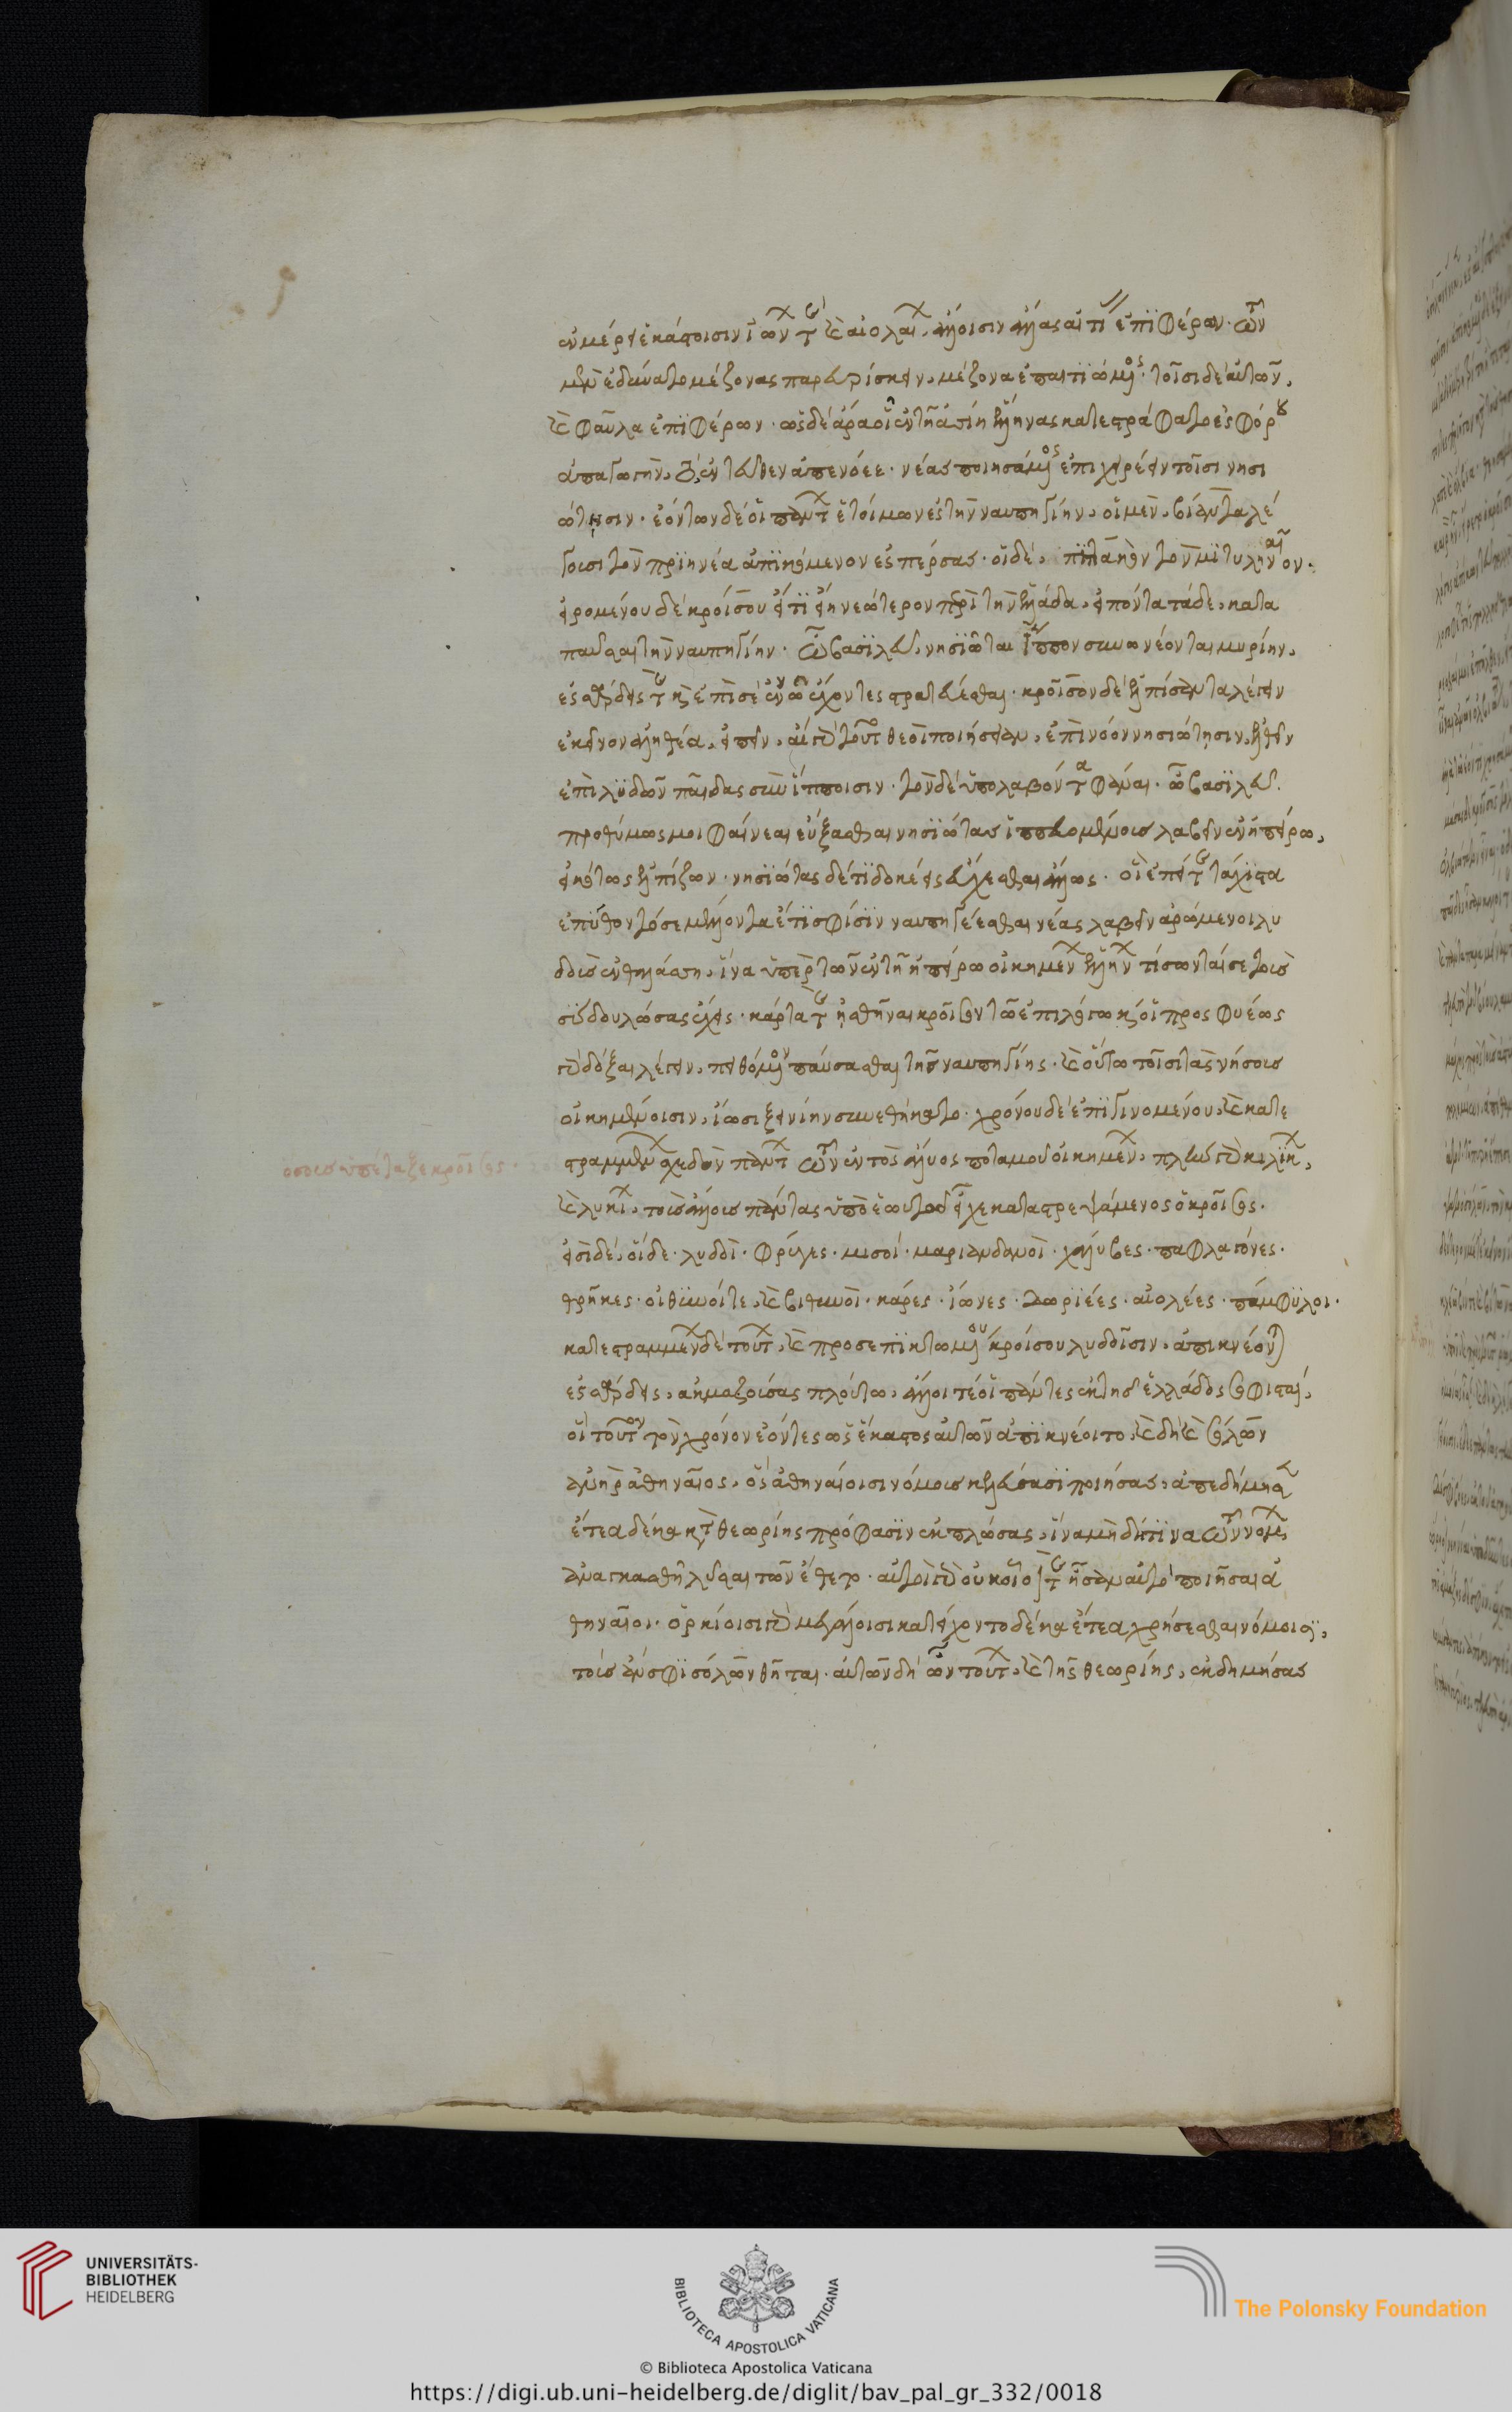 ἐν μέρει ἑκάστοισιν ἰώνων τε καὶ αἰολέων, ἄλλοισιν ἄλλας αἰτίας ἐπιφέρων· τῶν
μὲν ἐδύνατο μέζονας παρευρίσκειν, μέζονα ἐπαιτιώμενος· τοῖσι δὲ αὐτῶν,
καὶ φαῦλα ἐπιφέρων· ὡς δὲ ἄρα οἱ ἐν τῇ ἀσίῃ ἕλληνας κατεστράφατο ἐς φόρου
ἀπαγωγὴν, τὸ ἐντεῦθεν ἀπενόεε· νέας ποιησάμενος ἐπιχειρέειν τοῖσι νησι
ώτησιν· ἐόντων δέ οἱ πάντων ἑτοίμων ἐς τὴν ναυπηγίην, οἱ μὲν, βίαντα λέ
γουσι τὸν πριηνέα ἀπικόμενον ἐς πέρσας· οἱ δὲ, πιττακὸν τὸν μιτυληναῖον·
εἰρομένου δὲ κροίσου εἴ τι εἴη νεώτερον περὶ τὴν ἑλλάδα, εἰπόντα τάδε, κατα
παῦσαι τὴν ναυπηγίην· ὦ βασιλεῦ, νησιῶται ἵππον συνωνέονται μυρίην,
ἐς σάρδεις τε καὶ ἐπὶ σὲ ἐν νόῳ ἔχοντες στρατεύεσθαι· κροῖσον δὲ ἐλπίσαντα λέγειν
ἐκεῖνον ἀληθέα, εἰπεῖν, αἲ γὰρ τοῦτο θεοὶ ποιήσειαν, ἐπὶ νόον νησιώτησιν, ἐλθεῖν
ἐπὶ λυδῶν παῖδας σὺν ἵπποισιν· τὸν δὲ ὑπολαβόντα φάναι· ὦ βασιλεῦ·
προθύμως μοι φαίνεαι εὔξασθαι νησιώτας ἱππευομένους λαβεῖν ἐν ἠπείρῳ,
εἰκότως ἐλπίζων· νησιώτας δὲ τί δοκέεις εὔχεσθαι ἄλλως· ἢ ἐπεί τε τάχιστα
ἐπύθοντό σε μέλλοντα ἐπὶ σφίσιν ναυπηγέεσθαι νέας λαβεῖν ἀρώμενοι λυ
δοὺς ἐν θαλάσσῃ, ἵνα ὑπὲρ τῶν ἐν τῇ ἠπείρῳ οἰκημένων ἑλλήνων τίσωνταί σε τοὺς
σὺ δουλώσας ἔχεις· κάρτα τε ἡσθῆναι κροῖσον τῷ ἐπιλόγῳ καί οἱ προσφυέως
γὰρ δόξαι λέγειν, πειθόμενον παύσασθαι τῆς ναυπηγίης· καὶ οὕτω τοῖσι τὰς νήσους
οἰκημένοισιν, ἴωσι ξεινίην συνεθήκατο· χρόνου δὲ ἐπιγινομένου, καὶ κατε
στραμμένων σχεδὸν πάντων τῶν ἐντὸς ἅλυος ποταμοῦ οἰκημένων, πλὴν γὰρ κιλίκων,
καὶ λυκίων, τοὺς ἄλλους πάντας ὑπ' ἑωυτοῦ εἶχε καταστρεψάμενος ὁ κροῖσος·
εἰσὶ δὲ, οἵδε· λυδοὶ· φρύγες· μυσοί· μαριανδυνοὶ· χάλυβες· παφλαγόνες·
θρήικες· οἱ θυνοί τε, καὶ βιθυνοὶ· κάρες· ἴωνες· δωριέες· αἰολέες· πάμφυλοι·
κατεστραμμένων δὲ τούτων, καὶ προσεπικτωμένου κροίσου λυδοῖσιν, ἀπικνέονται
ἐς σάρδεις, ἀκμαζούσας πλούτῳ, ἄλλοι τε οἱ πάντες ἐκ τῆς ἑλλάδος σοφισταί,
οἳ τοῦτον τὸν χρόνον ἐόντες ὡς ἕκαστος αὐτῶν ἀπικνέοιτο, καὶ δὴ καὶ σόλων
ἀνὴρ ἀθηναῖος, ὃς ἀθηναίοισι νόμους κελεύσασι ποιήσας, ἀπεδήμησεν
ἔτεα δέκα κατὰ θεωρίης πρόφασιν ἐκπλώσας, ἵνα μὴ δή τινα τῶν νόμων
ἀναγκασθῇ λῦσαι τῶν ἔθετο· αὐτοὶ γὰρ οὐκ οἷοί τε ἦσαν αὐτὸ ποιῆσαι ἀ
θηναῖοι· ὁρκίοισι γὰρ μεγάλοισι κατείχοντο δέκα ἔτεα χρήσεσθαι νόμοισι,
τοὺς ἄν σφι σόλων θῆται· αὐτῶν δὴ ὦν τούτων, καὶ τῆς θεωρίης, ἐκδημήσας
ὅσους ὑπέταξε κροῖσος·
UNIVERSITÄTS-
BIBLIOTHEK
HEIDELBERG
BIBLIOTECA APOSTOLICA VATICANA
© Biblioteca Apostolica Vaticana
The Polonsky Foundation
https://digi.ub.uni-heidelberg.de/diglit/bav_pal_gr_332/0018